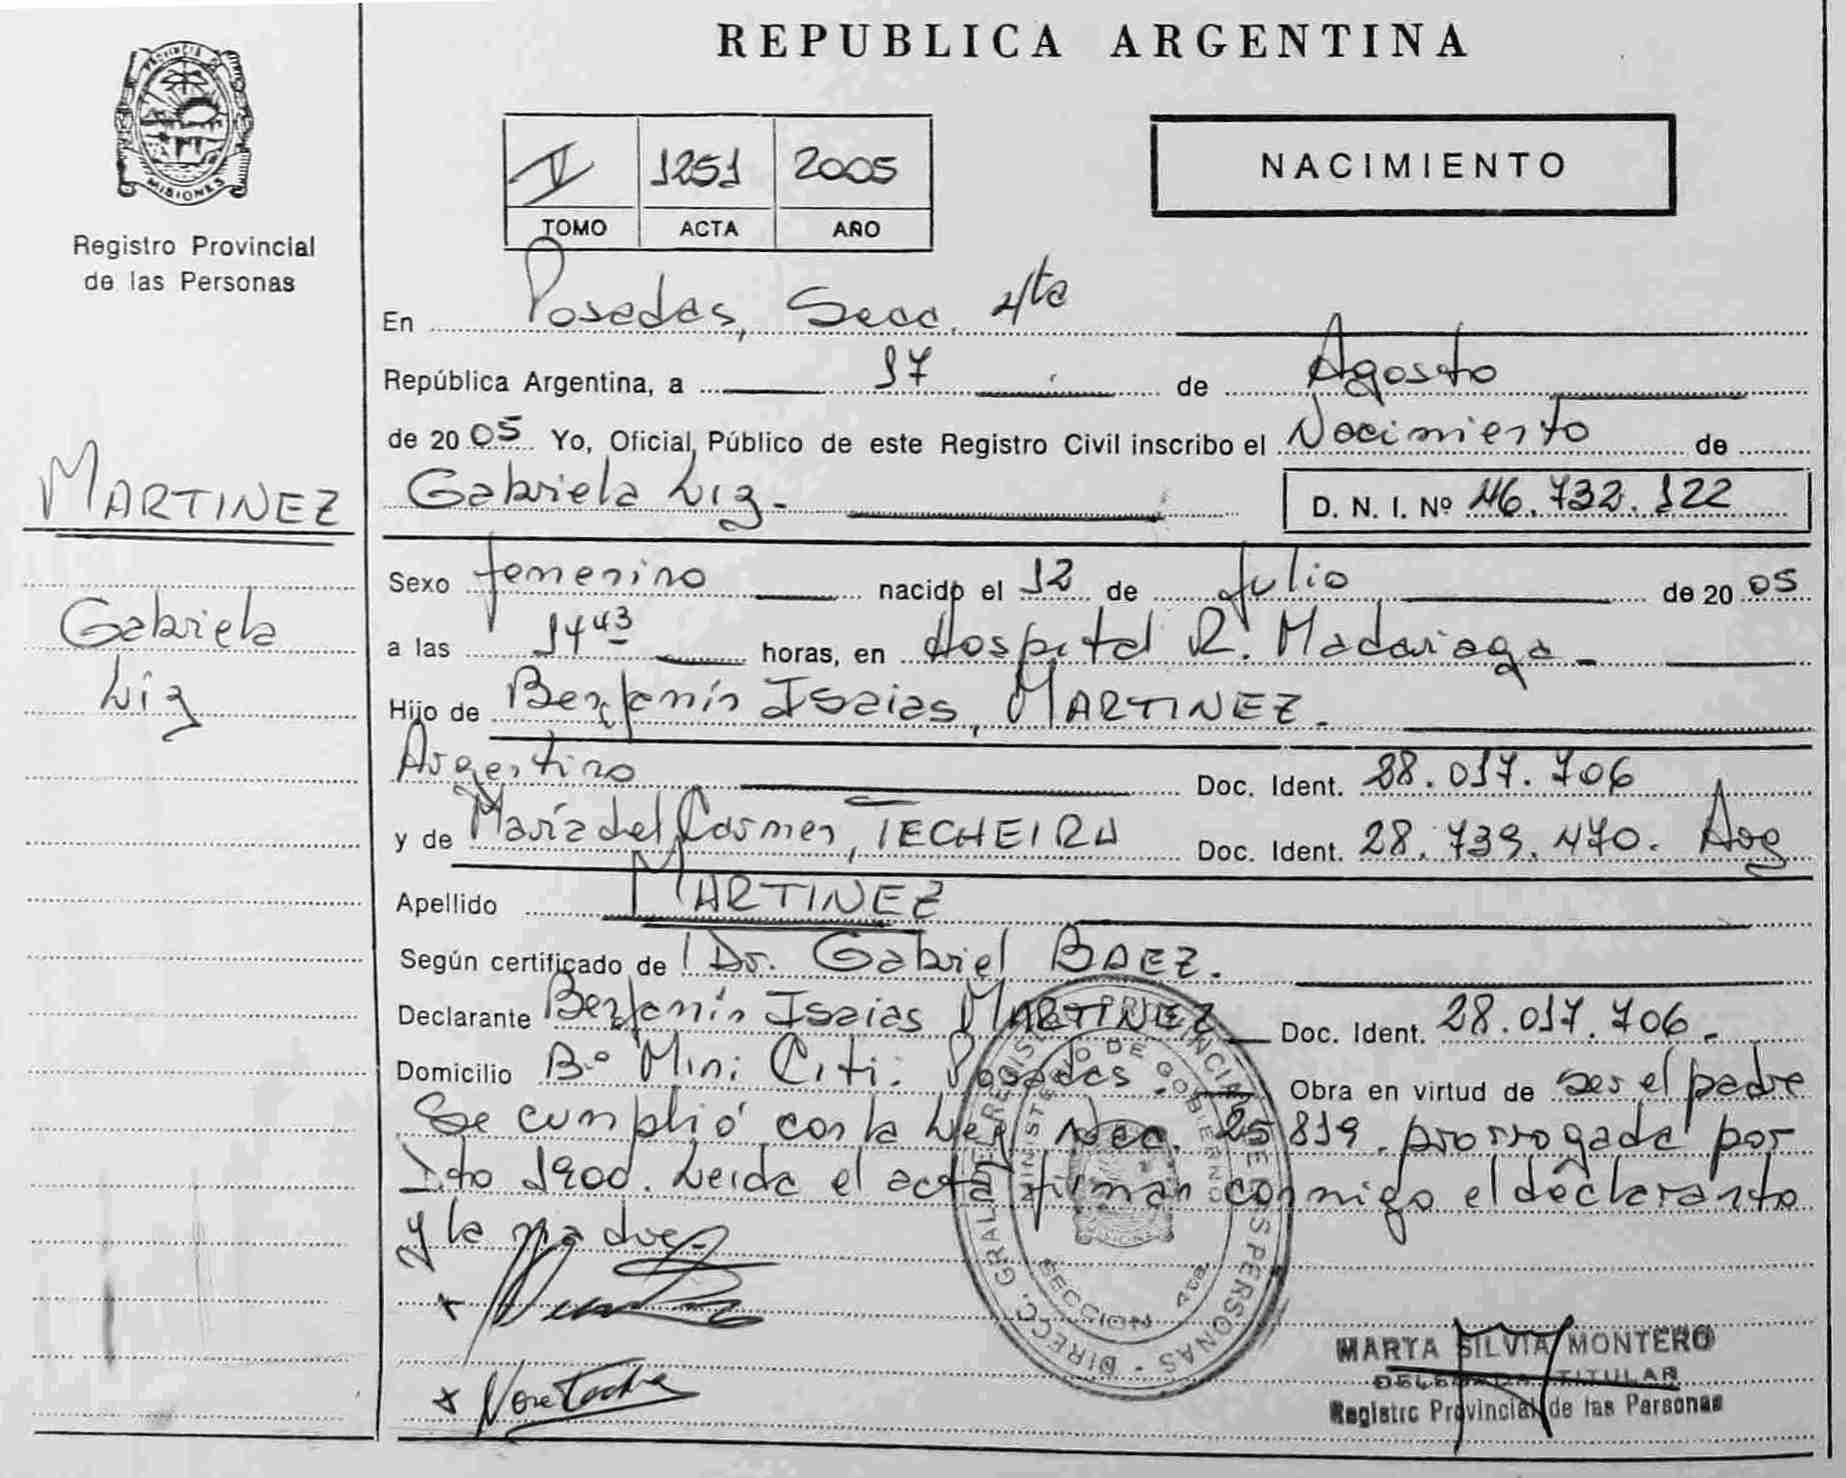 REPUBLICA ARGENTINA
PROVINCIA DE MISIONES
Registro Provincial
de las Personas
V 1251 2005
TOMO ACTA AÑO
NACIMIENTO
En Posadas, Secc. 4ta
República Argentina, a 17 de Agosto
de 2005 Yo, Oficial Público de este Registro Civil inscribo el Nacimiento de
Gabriela Liz.- D. N. I. Nº 46.732.122
MARTINEZ
Gabriela
Liz
Sexo femenino nacido el 12 de Julio de 2005
a las 1443 horas, en Hospital R. Madariaga.-
Hijo de Benjamín Isaias, MARTINEZ.-
Argentino Doc. Ident. 28.017.706
y de María del Carmen, TECHEIRA Doc. Ident. 28.739.470. Arg
Apellido MARTINEZ
Según certificado de Dr. Gabriel BAEZ.
Declarante Benjamín Isaias MARTINEZ Doc. Ident. 28.017.706.-
Domicilio Bº Mini Citi. Posadas.- Obra en virtud de ser el padre
Se cumplió con la Ley Nac. 25819. prorrogada por
Dto 1900. Leida el acta firman conmigo el declarante
y la madre.
DIRECC. GRAL. DE REGISTRO PROVINCIAL DE LAS PERSONAS
MINISTERIO DE GOBIERNO
MISIONES
SECCION 4ta.
MARTA SILVIA MONTERO
DELEGADA TITULAR
Registro Provincial de las Personas